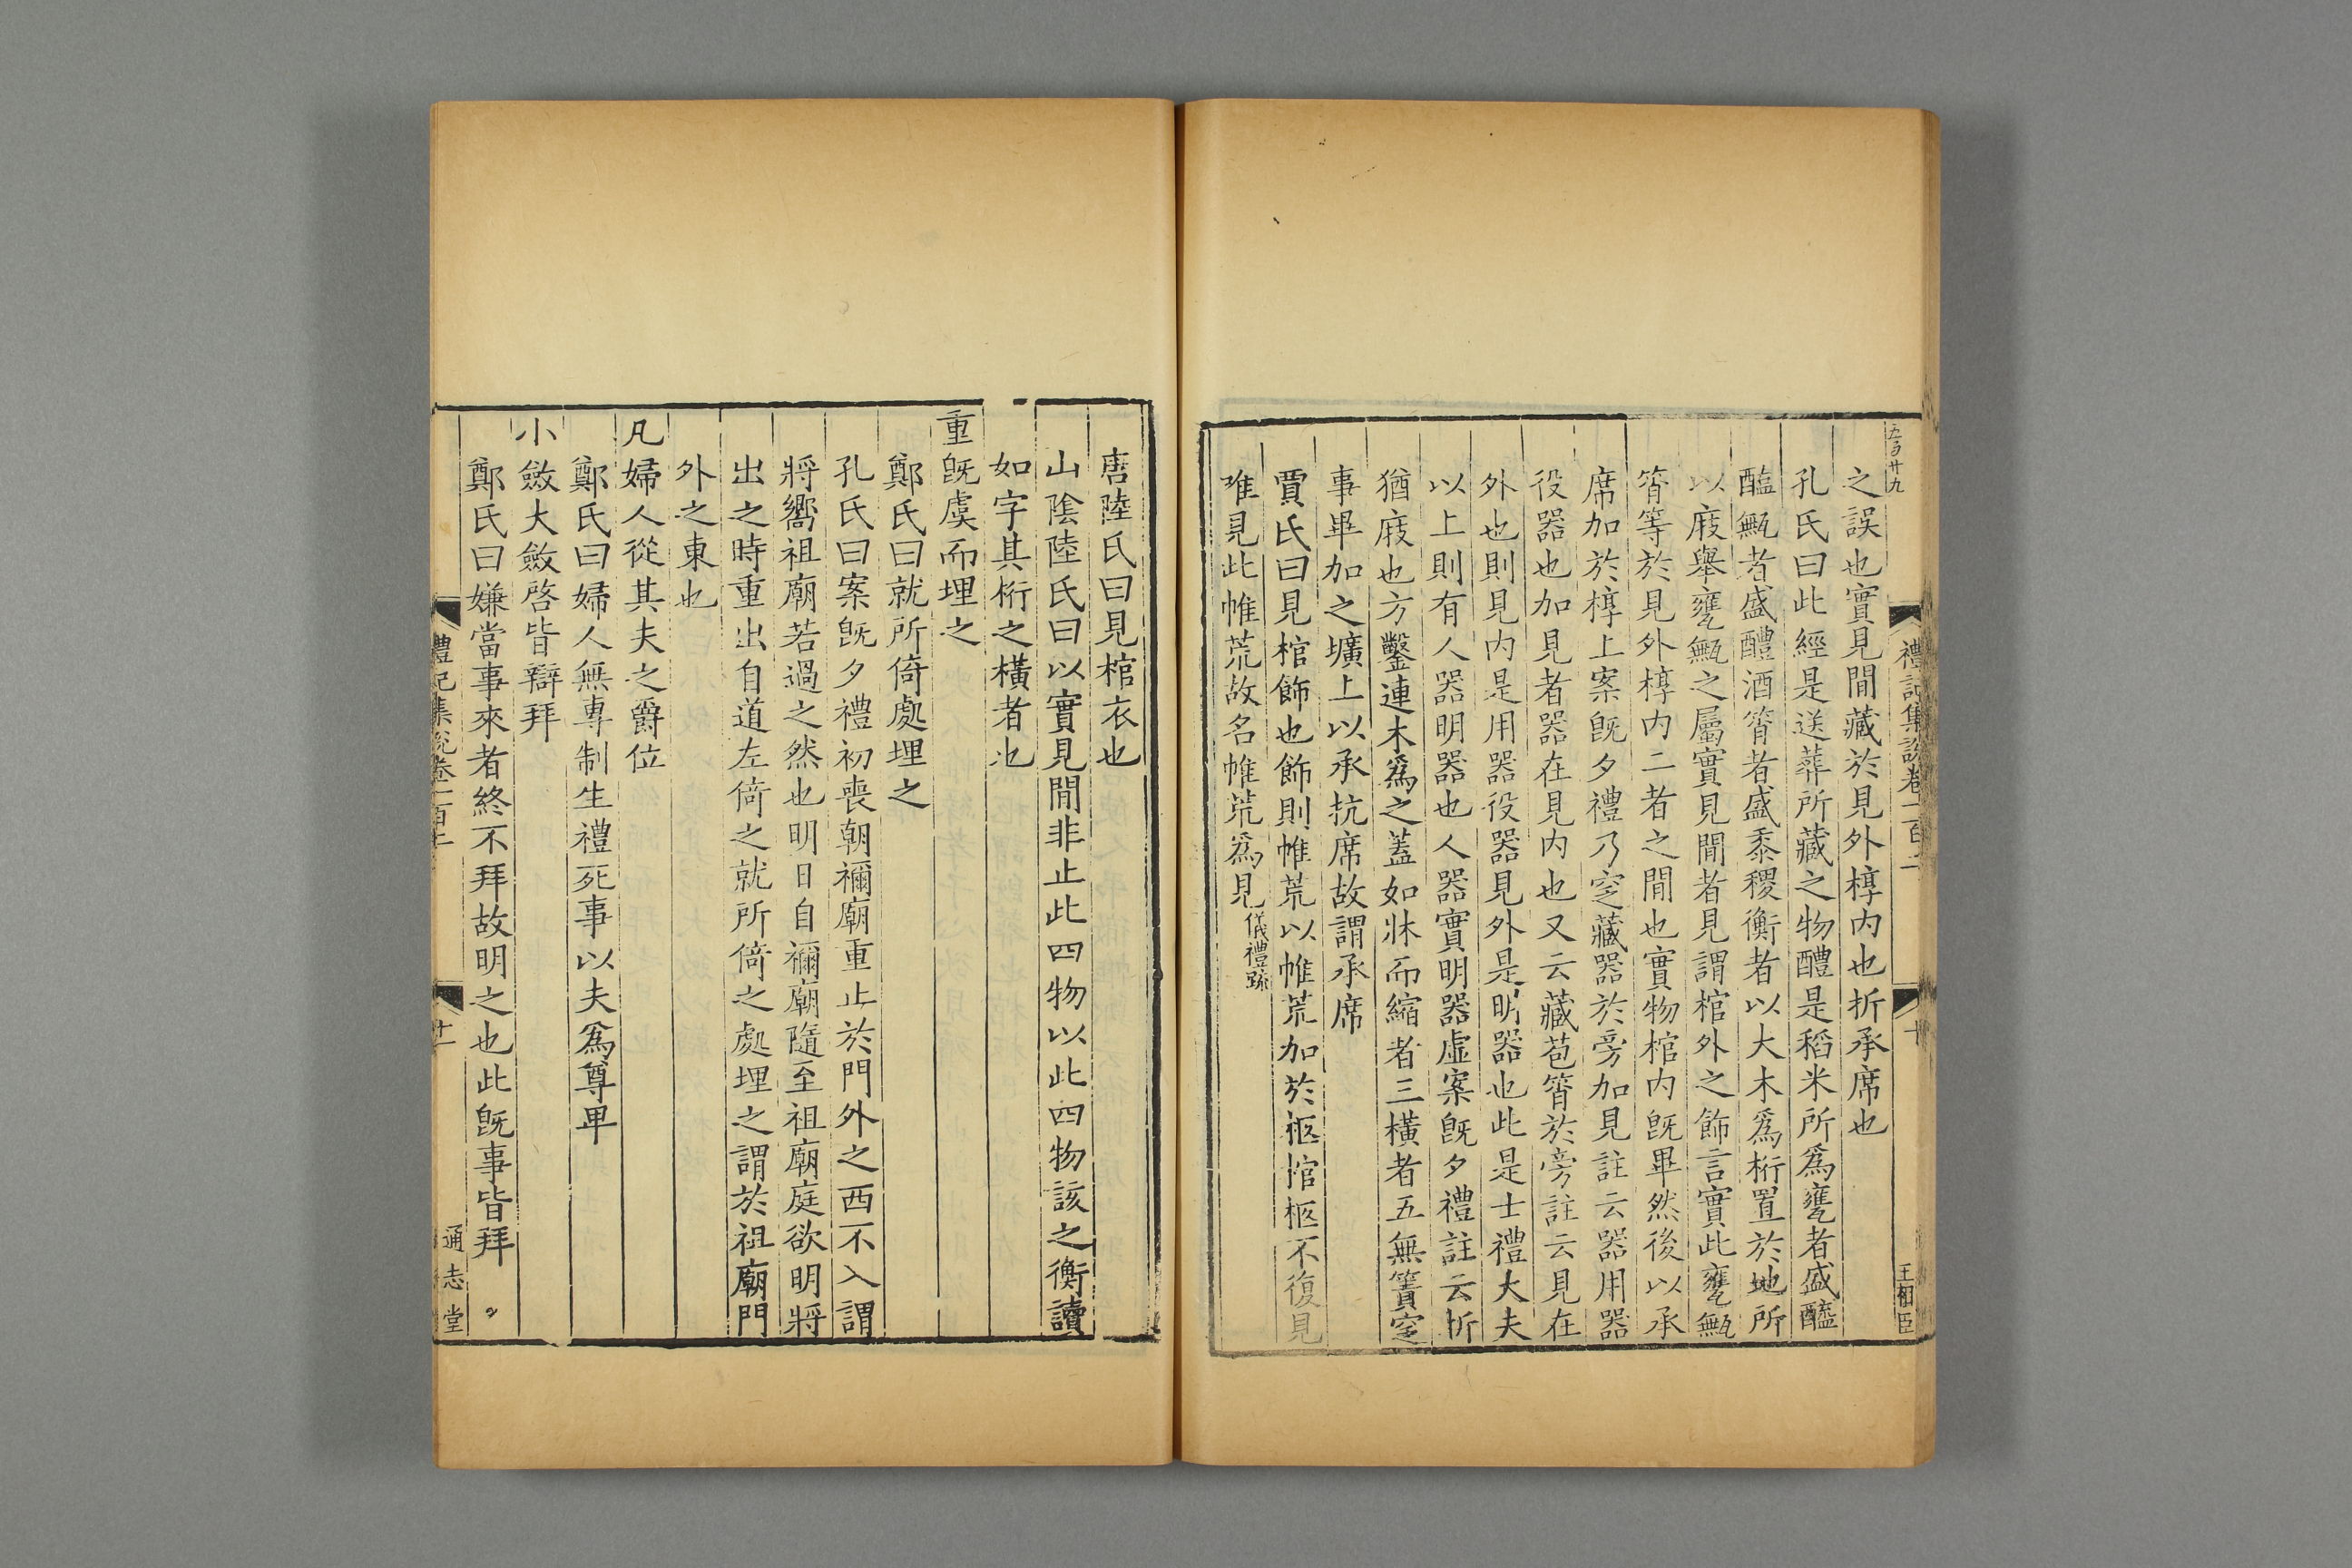 五百廿九
禮記集說卷一百二
十
王相臣
之誤也實見閒藏於見外椁内也折承席也
孔氏曰此經是送葬所藏之物醴是稻米所爲甕者盛醯
醢甒者盛醴酒筲者盛黍稷衡者以大木爲桁置於地所
以庪舉甕甒之屬實見閒者見謂棺外之飾言實此甕甒
筲等於見外椁内二者之閒也實物棺内既畢然後以承
席加於椁上案既夕禮乃窆藏器於旁加見註云器用器
役器也加見者器在見内也又云藏苞筲於旁註云見在
外也則見内是用器役器見外是明器也此是士禮大夫
以上則有人器明器也人器實明器虛案既夕禮註云折
猶庪也方鑿連木爲之蓋如牀而縮者三橫者五無簀窆
事畢加之壙上以承抗席故謂承席
賈氏曰見棺飾也飾則帷荒以帷荒加於柩棺柩不復見
唯見此帷荒故名帷荒爲見儀禮疏
唐陸氏曰見棺衣也
山陰陸氏曰以實見閒非止此四物以此四物該之衡讀
如字其桁之橫者也
重既虞而埋之
鄭氏曰就所倚處埋之
孔氏曰案既夕禮初喪朝禰廟重止於門外之西不入謂
將嚮祖廟若過之然也明日自禰廟隨至祖廟庭欲明將
出之時重出自道左倚之就所倚之處埋之謂於祖廟門
外之東也
凡婦人從其夫之爵位
鄭氏曰婦人無專制生禮死事以夫爲尊卑
小斂大斂啓皆辯拜
鄭氏曰嫌當事來者終不拜故明之也此既事皆拜
禮記集說卷一百二
十一
通志堂